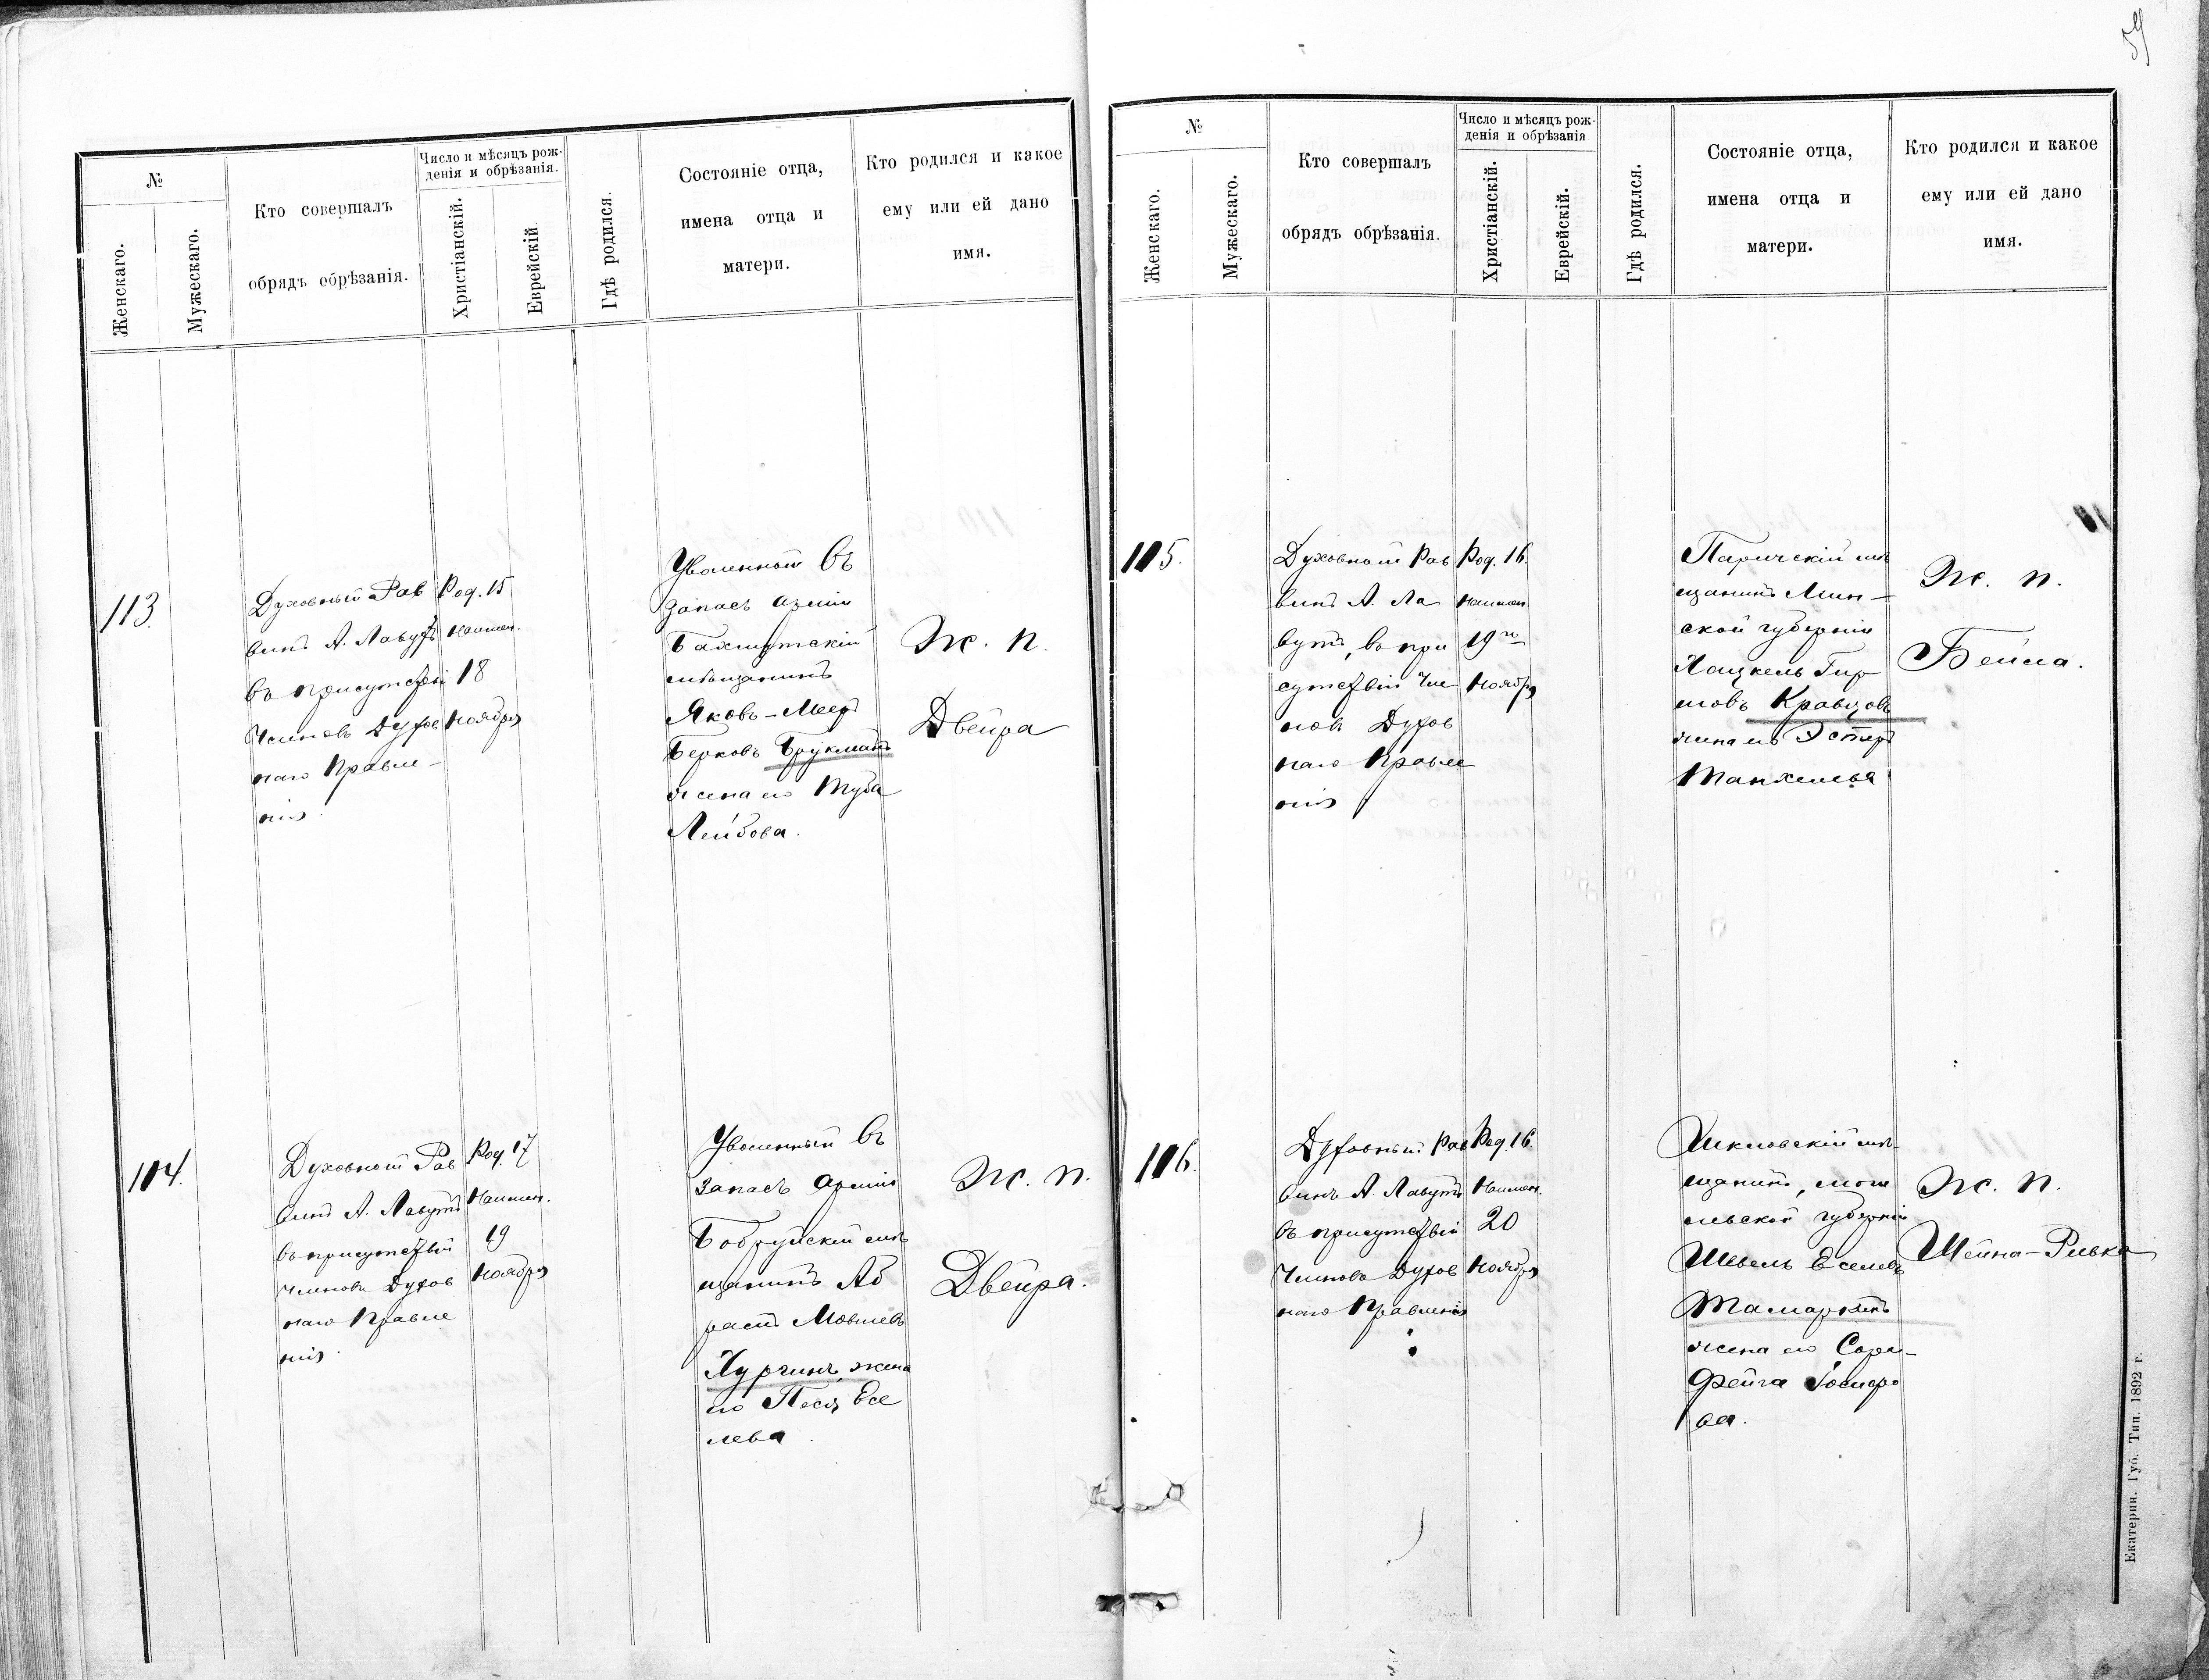 №
Женскаго.
Мужескаго.
Кто совершалъ
обрядъ обрѣзанія.
Число и мѣсяцъ рож-
денія и обрѣзанія.
Христіанскій.
Еврейскій
Гдѣ родился.
Состояніе отца,
имена отца и
матери.
Кто родился и какое
ему или ей дано
имя.
113.
Духовный Рав
винъ А. Лавутъ
въ присутствіи
Членовъ Духов
наго Правле-
нія
Род. 15
Наимен.
18
Ноября
Уволенный въ
запасъ арміи
Бахмутскій
мѣщанинъ
Яковъ-Меер
Берковъ Брукманъ
жена его Туба
Лейбова.
Ж. п.
Двейра
104.
Духовный Рав
винъ А. Лавутъ
въ присутствіи
Членовъ Духов
наго Правле
нія.
Род. 17
Наимен.
19
Ноября
Уволенный въ
запасъ арміи
Бобруйскій мѣ
щанинъ Аб
рамъ Мовшевъ
Хургинъ, жена
его Песя Есе
лева
Ж. п.
Двейра.
№
Женскаго.
Мужескаго.
Кто совершалъ
обрядъ обрѣзанія.
Число и мѣсяцъ рож-
денія и обрѣзанія
Христіанскій.
Еврейскій.
Гдѣ родился.
Состояніе отца,
имена отца и
матери.
Кто родился и какое
ему или ей дано
имя.
105.
Духовный Рав
винъ А. Ла
вутъ, въ при
сутствіи Чле
новъ Духов
наго Правле
нія
Род. 16.
Наимен.
19го
Ноября
Паричскій мѣ
щанинъ Мин-
ской губерніи
Хацкель Гир
шовъ Кравцовъ
жена его Эстеръ
Танхелева
Ж. п.
Бейла.
106.
Духовный Рав
винъ А. Лавутъ
въ присутствіи
Членовъ Духов
наго Правленія
Род. 16.
Наимен.
20
Ноября
Шкловскій мѣ-
щанинъ, моги
левской губерніи
Шевель Еселевъ
Тамаркинъ
жена его Сора-
Фейга
ва.
Ж. п.
Шейна-Ривка
Екатерин. Губ. Тип. 1892 г.